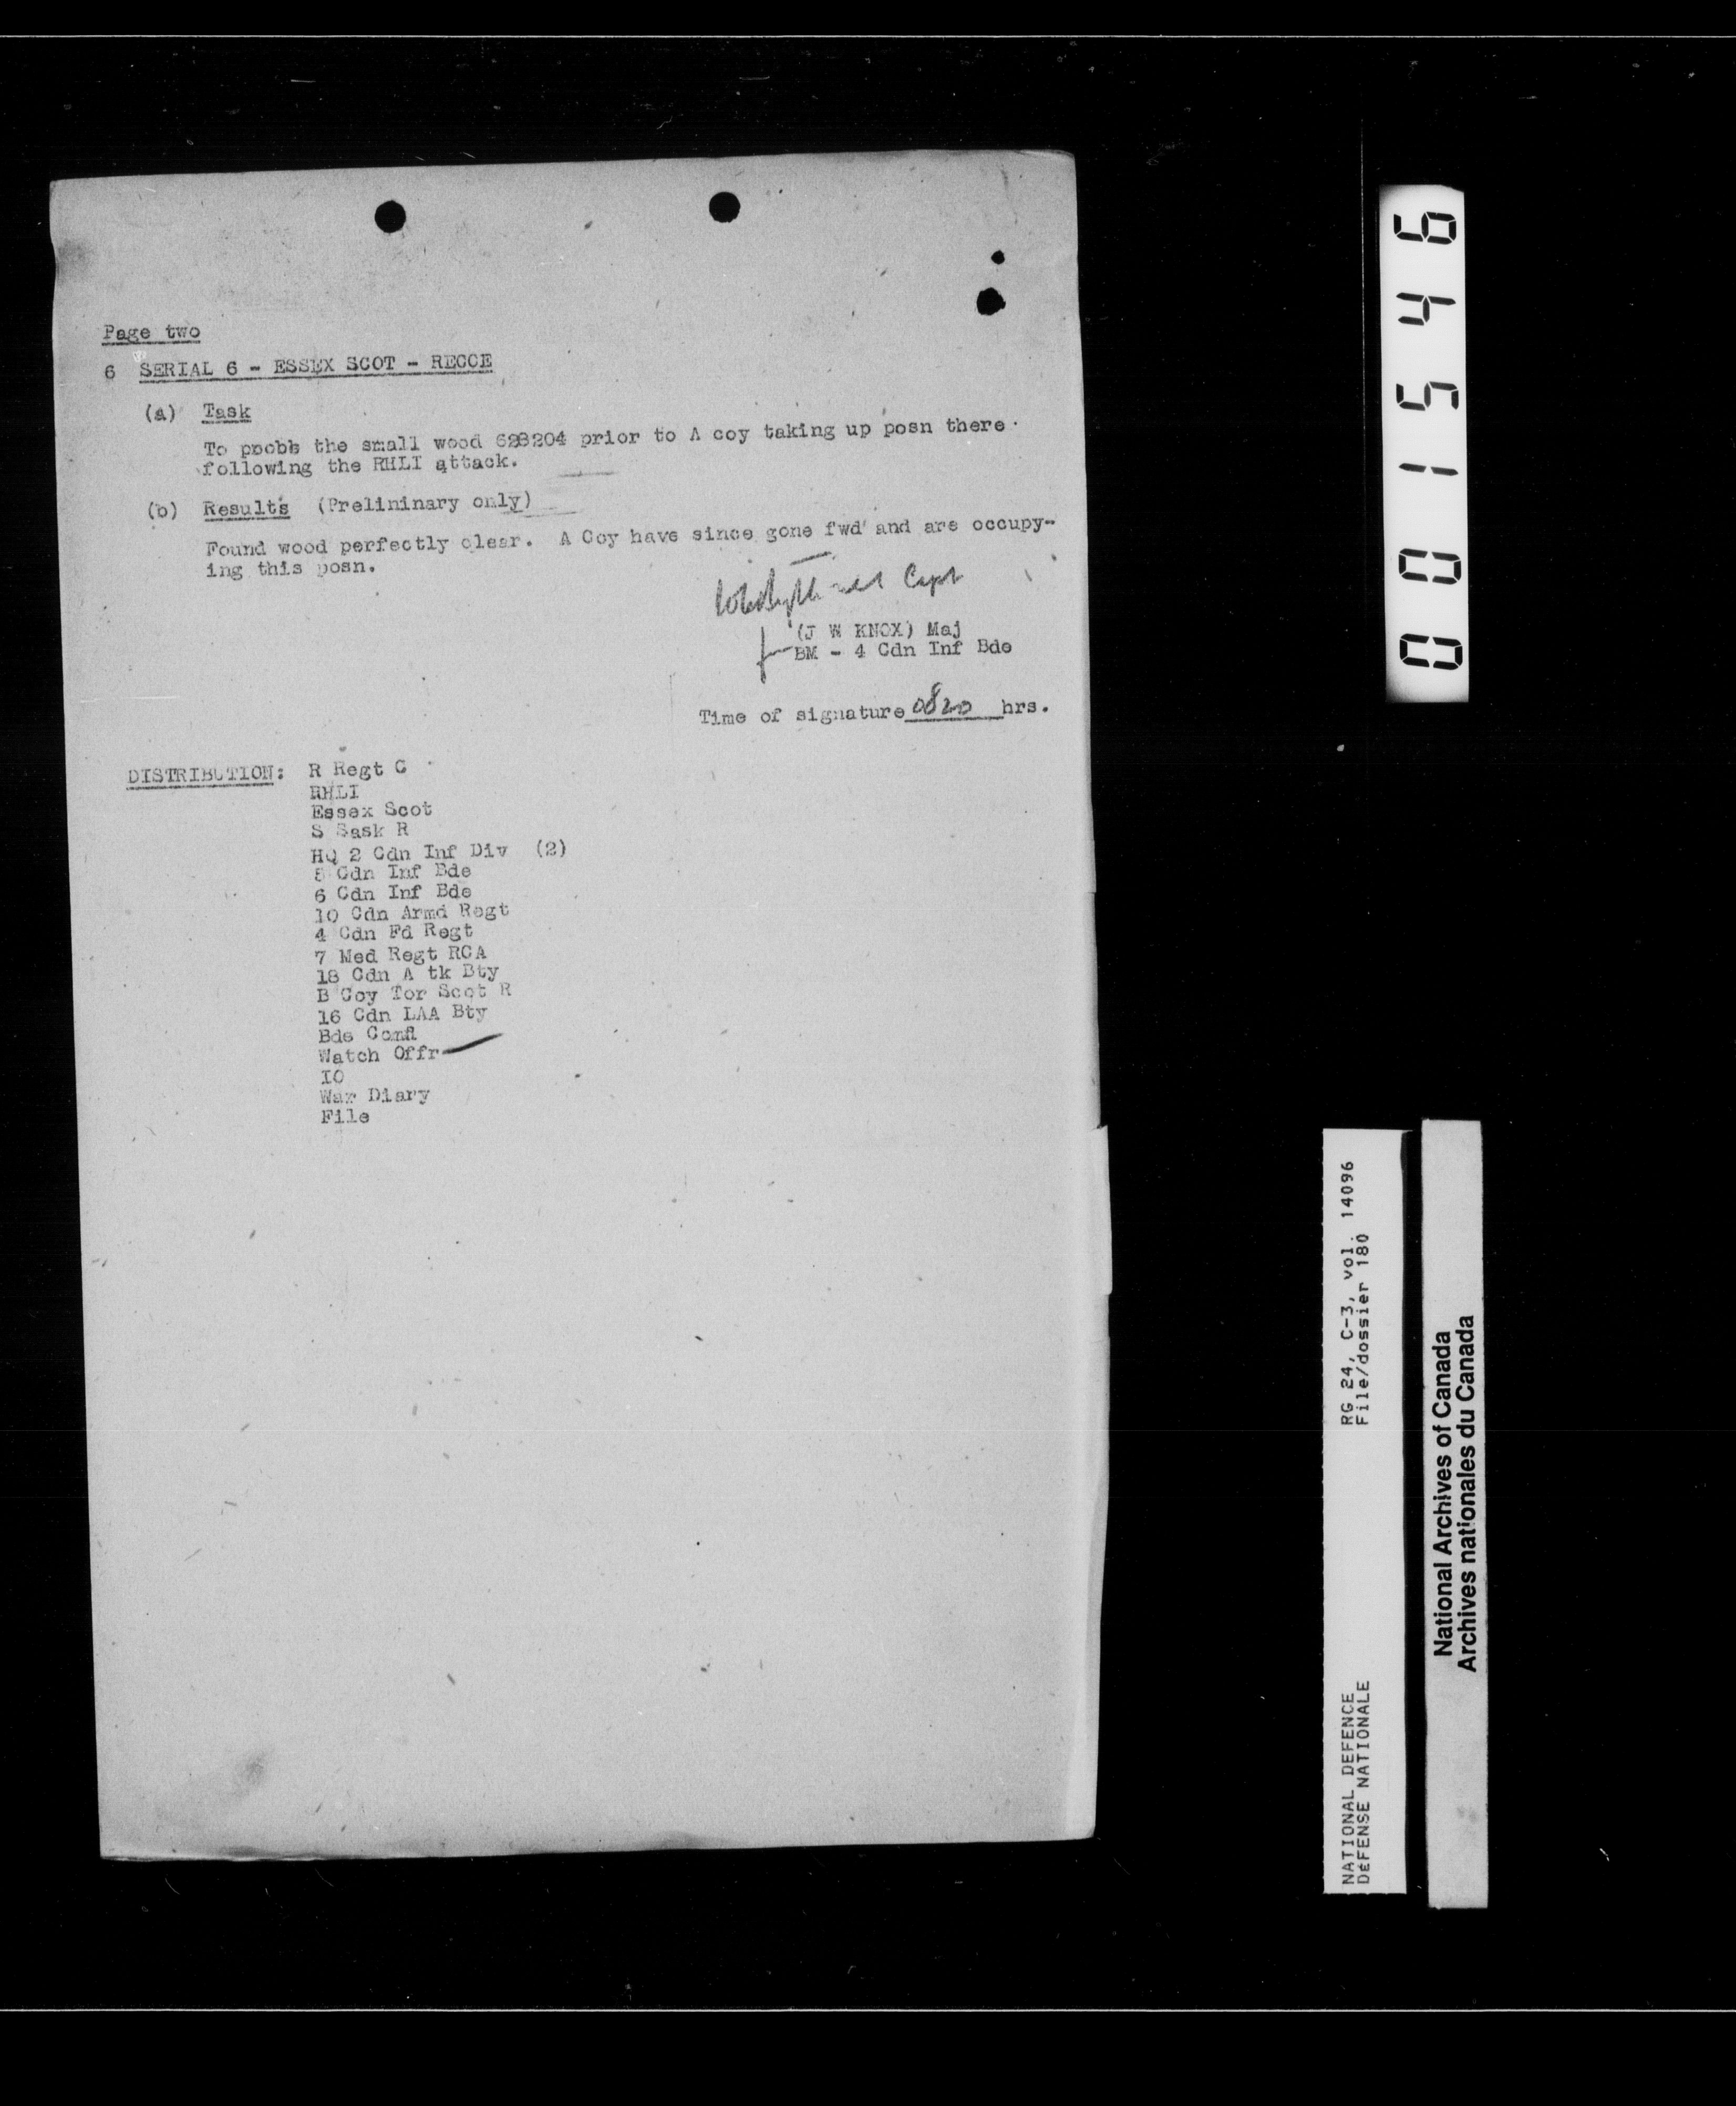 Page two
6 SERIAL 6 - ESSEX SCOT - RECCE
(a) Task
To probb the small wood 628204 prior to A coy taking up posn there
following the RHLI attack.
(b) Results (Prelininary only)
Found wood perfectly clear. A Coy have since gone fwd and are occupy-
ing this posn.
Capt
(J W KNOX) Maj
BM - 4 Cdn Inf Bde
Time of signature 0820 hrs.
DISTRIBUTION: R Regt C
RHLI
Essex Scot
S Sask R
HQ 2 Cdn Inf Div (2)
5 Cdn Inf Bde
6 Cdn Inf Bde
10 Cdn Armd Regt
4 Cdn Fd Regt
7 Med Regt RCA
18 Cdn A tk Bty
B Coy Tor Scot R
16 Cdn LAA Bty
Bde Comd
Watch Offr
IO
War Diary
File
001546
RG 24, C-3, vol. 14096
File/dossier 180
NATIONAL DEFENCE
DéFENSE NATIONALE
National Archives of Canada
Archives nationales du Canada